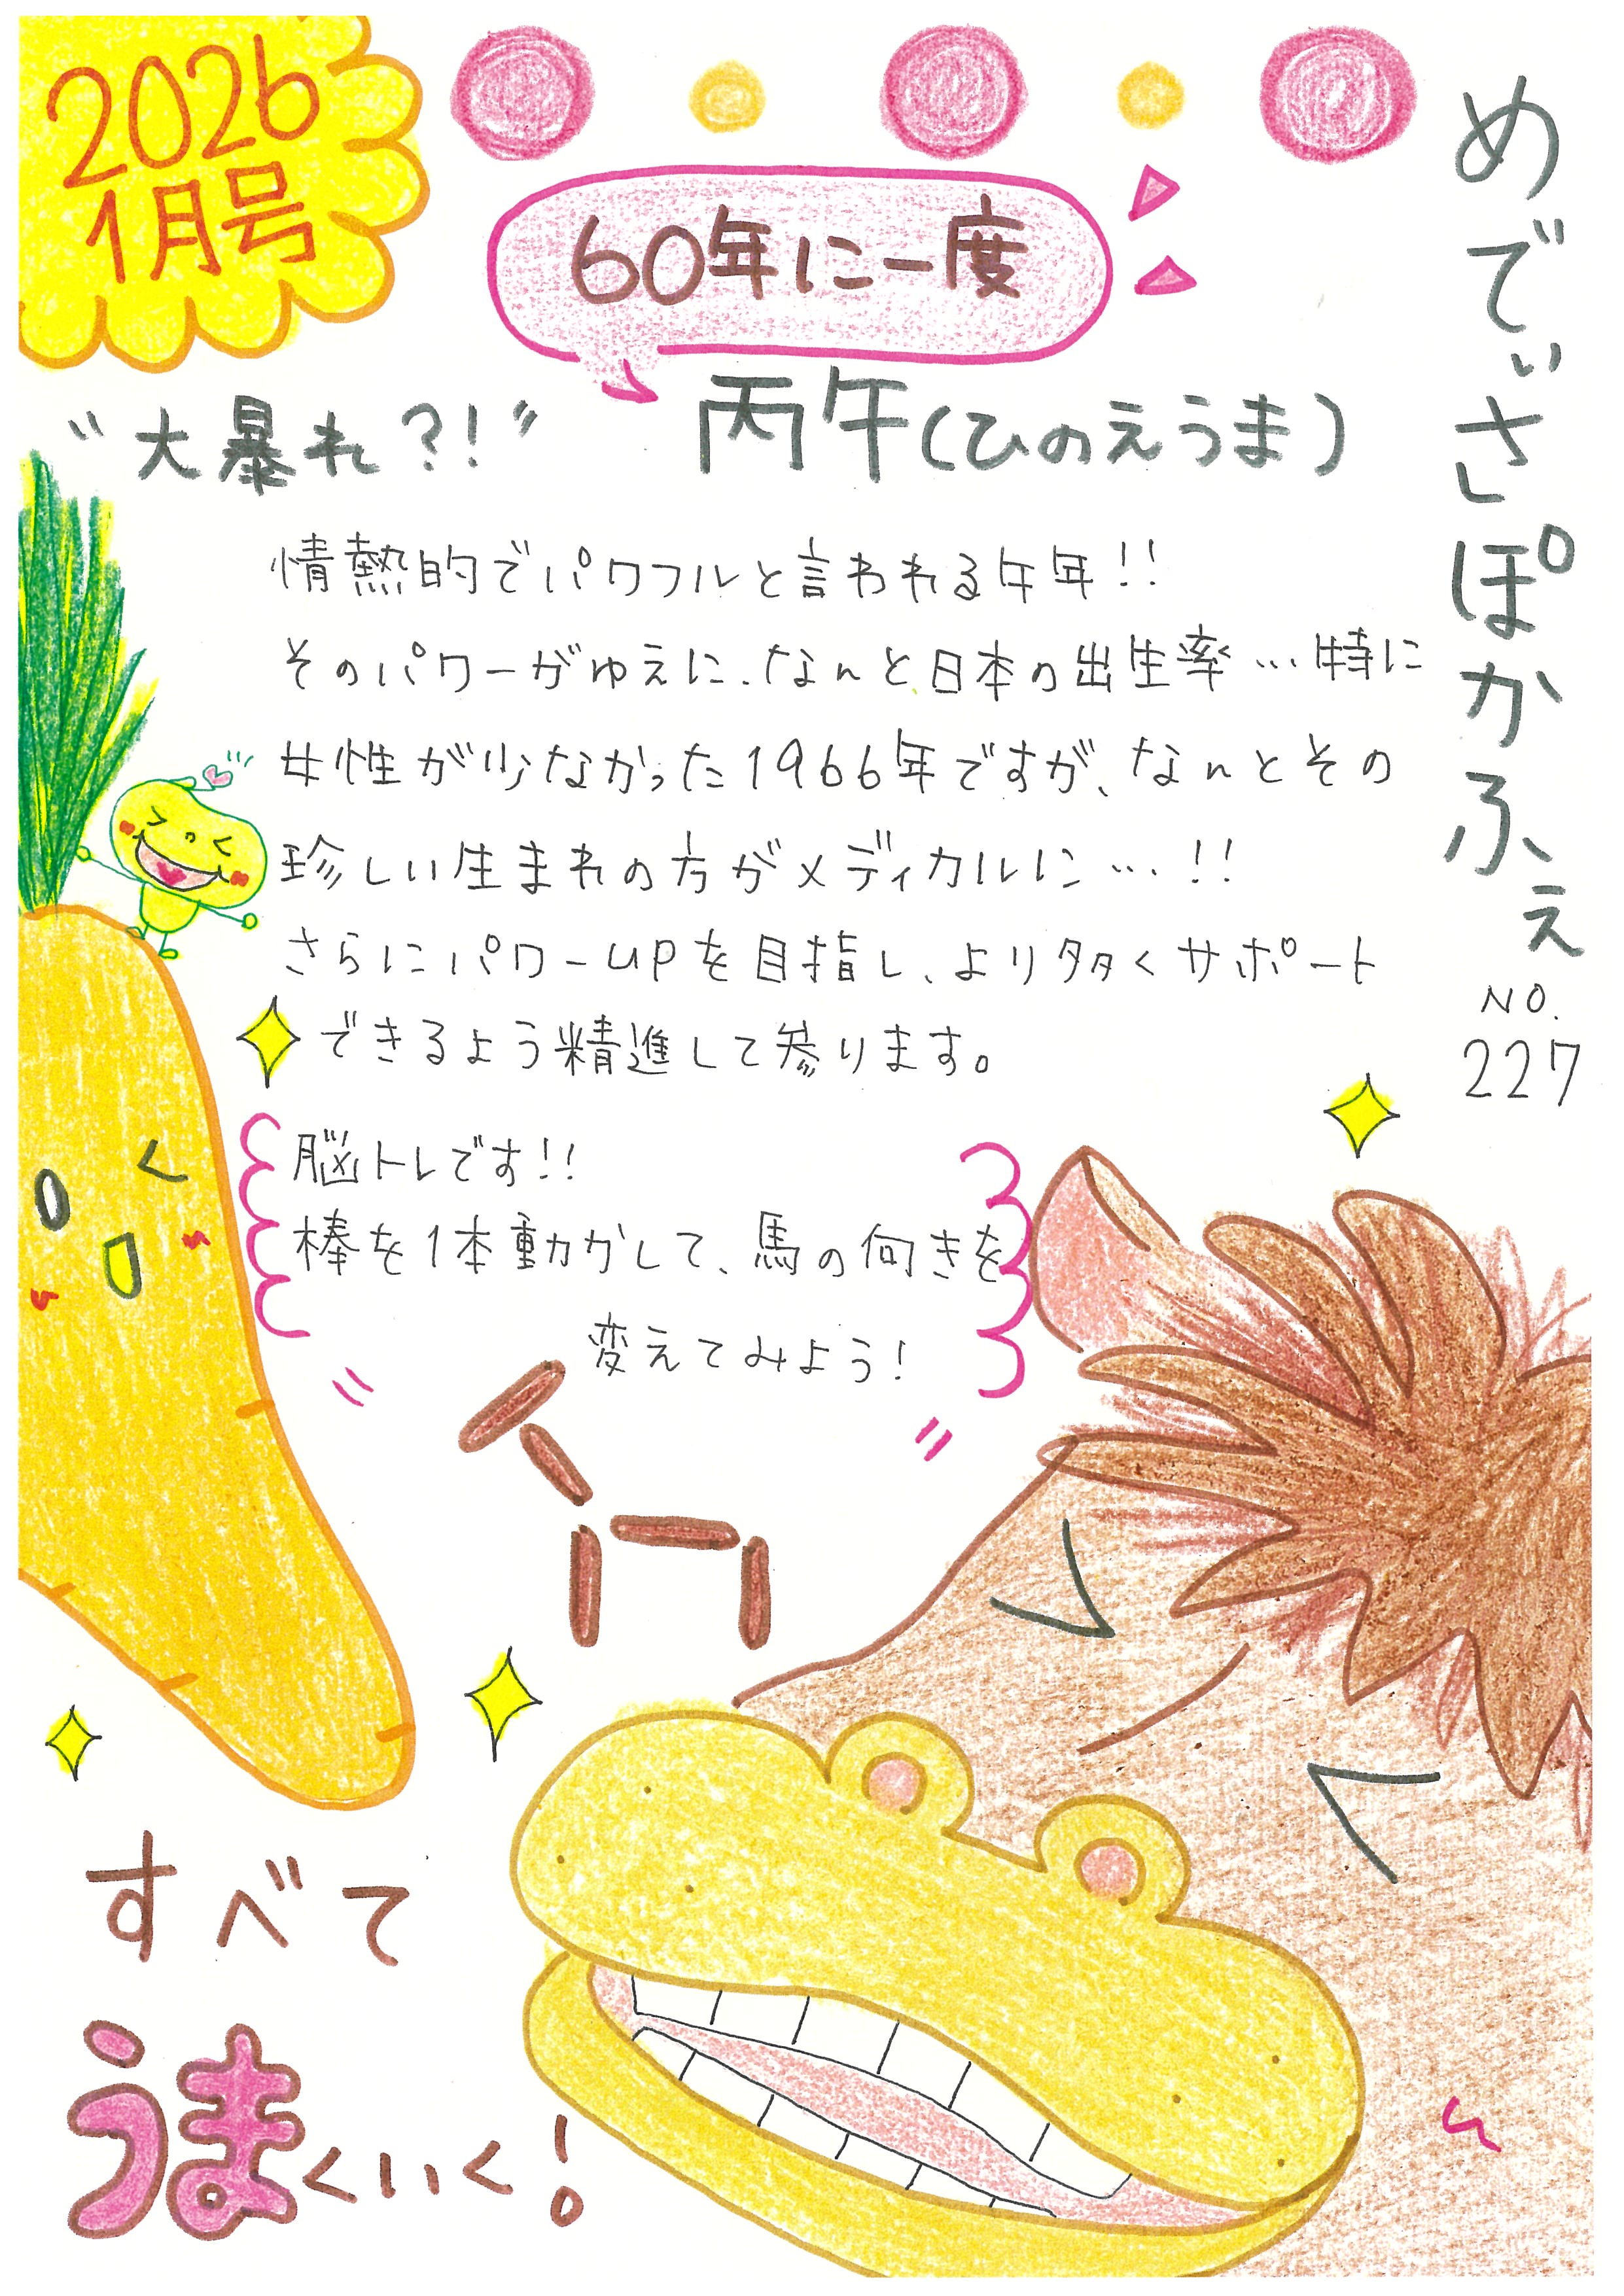 2026
1月号
60年に一度
めでぃさぽかふぇ
NO.
227
"大暴れ?!" 丙午(ひのえうま)
情熱的でパワフルと言われる午年!!
そのパワーがゆえに、なんと日本の出生率…特に
女性が少なかった1966年ですが、なんとその
珍しい生まれの方がメディカルに…!!
さらにパワーupを目指し、より多くサポート
できるよう精進して参ります。
脳トレです!!
棒を1本動かして、馬の向きを
変えてみよう!
すべて
うまくいく!